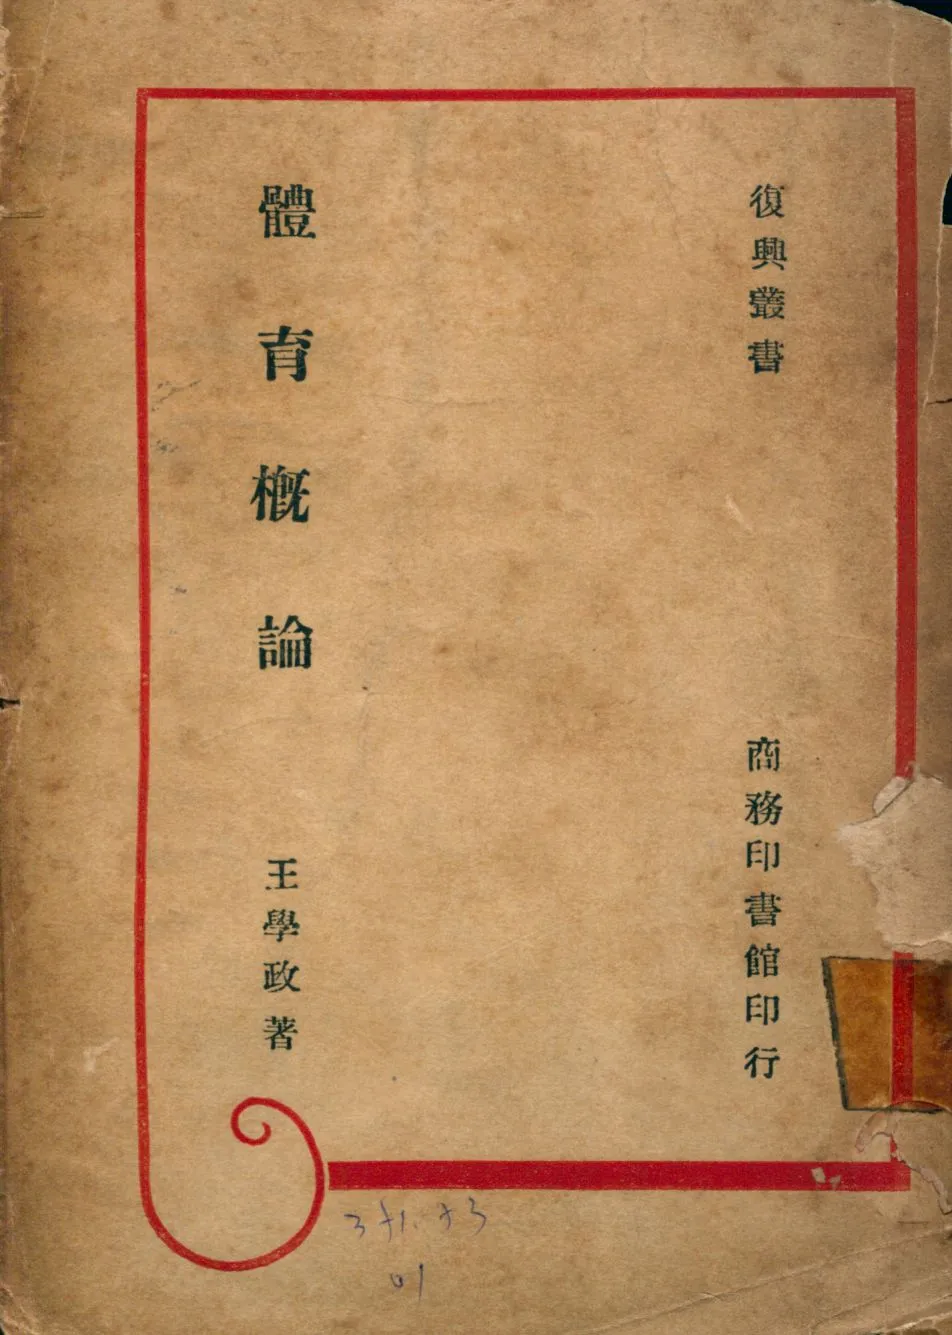 復興叢書
商務印書館印行
體育概論
王學政著